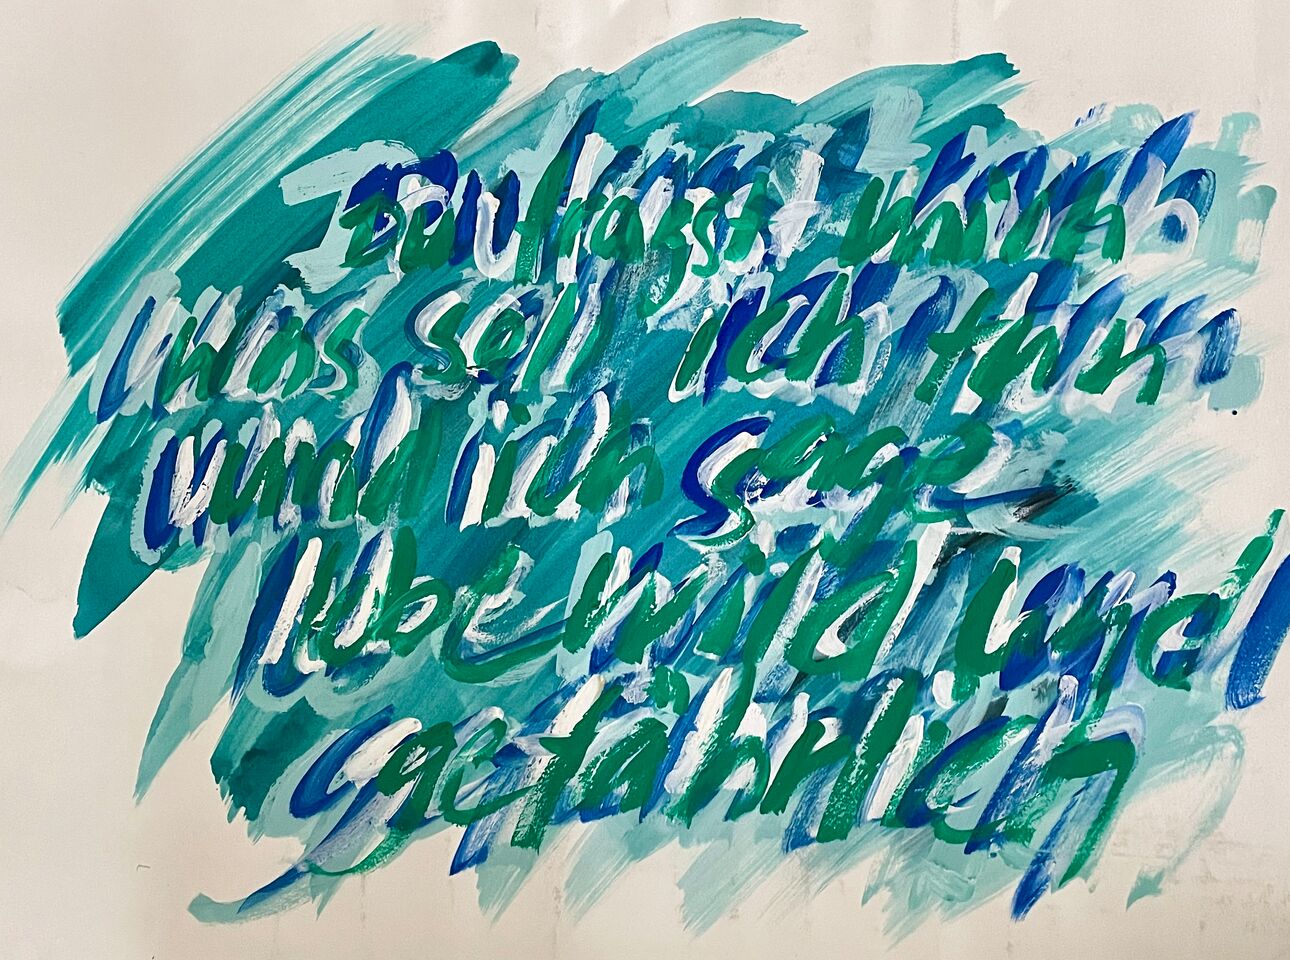 Du fragst mich
was soll ich tun
und ich sage
lebe wild und
gefährlich